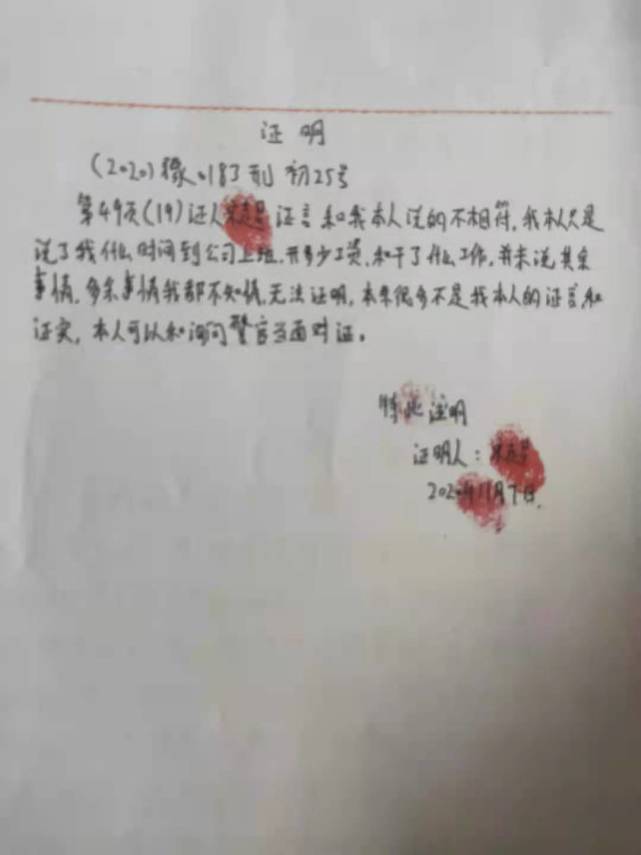 证明
(2020)豫0183刑初25号
第49页(19)证人 证言和我本人说的不相符，我本人只是
说了我什么时间到公司上班，开多少工资，和干了什么工作，并未说其余
事情，多余事情我都不知情，无法证明，本来很多不是我本人的证言和
证实，本人可以和询问警官当面对证。
特此证明
证明人：
2020年11月7日